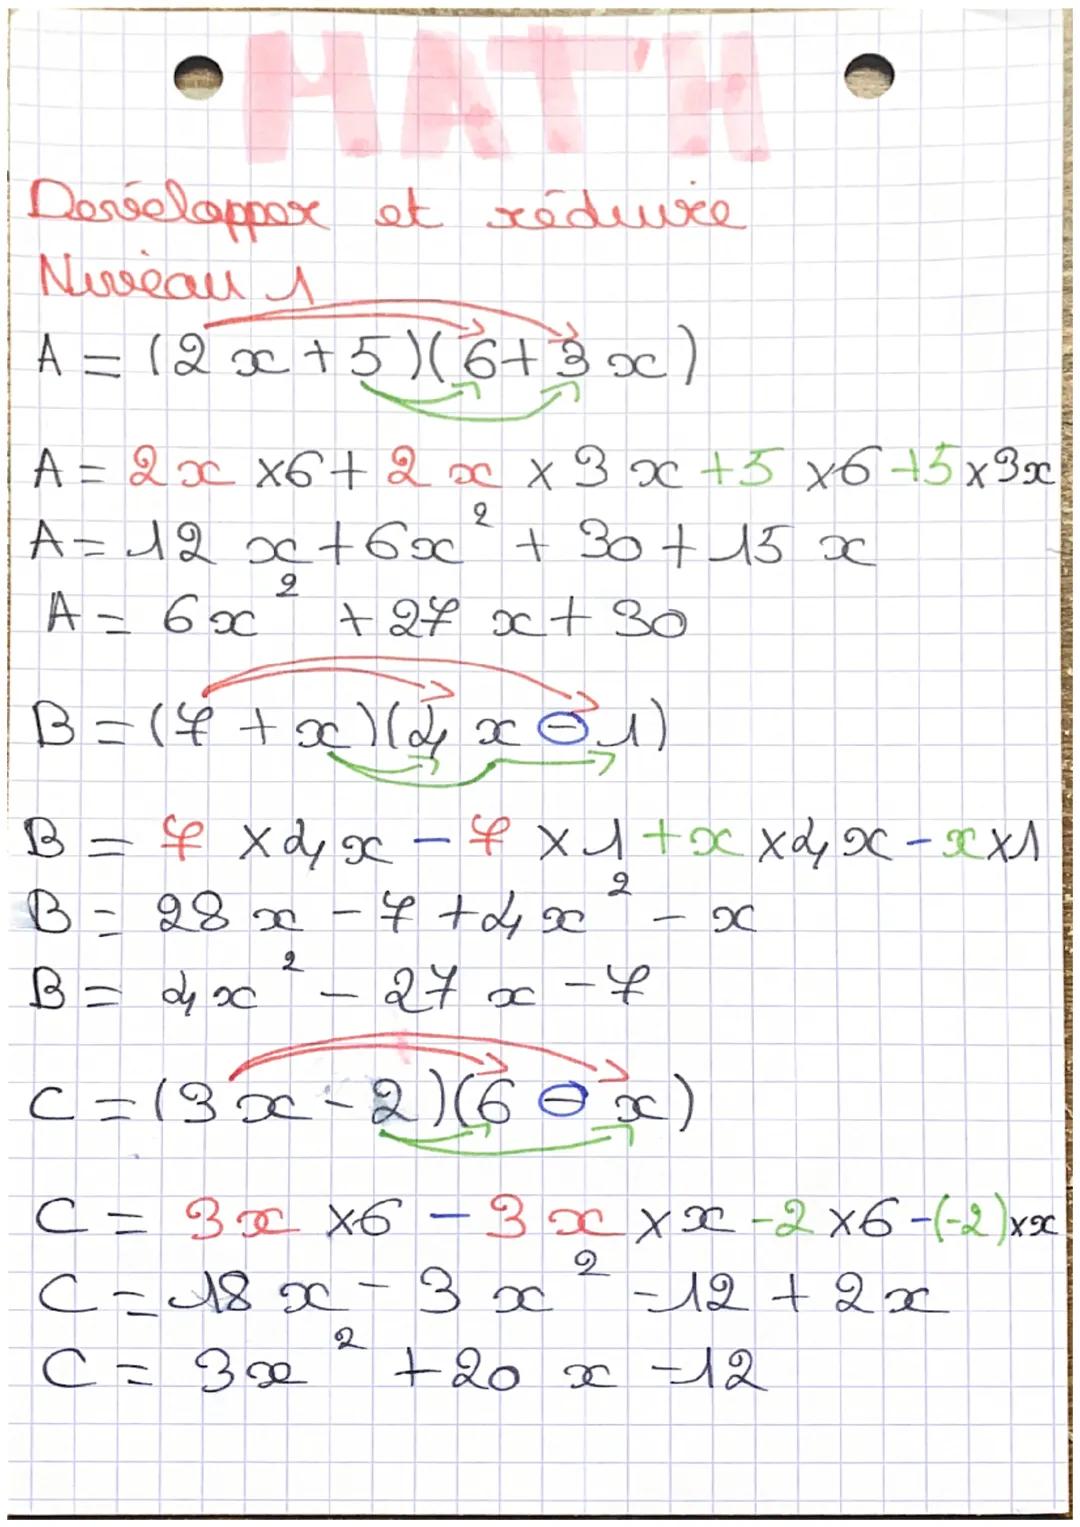 MATH
Dévélopper et réduire
Niveau 1
A = (2x + 5)(6 + 3x)
A = 2x × 6 + 2x × 3x + 5 × 6 + 5 × 3x
A = 12x + 6x² + 30 + 15x
A = 6x² + 27x + 30
B = (7 + x)(4x - 1)
B = 7 × 4x - 7 × 1 + x × 4x - x × 1
B = 28x - 7 + 4x² - x
B = 4x² - 27x - 7
C = (3x - 2)(6 - x)
C = 3x × 6 - 3x × x - 2 × 6 - (-2) × x
C = 18x - 3x² - 12 + 2x
C = 3x² + 20x - 12